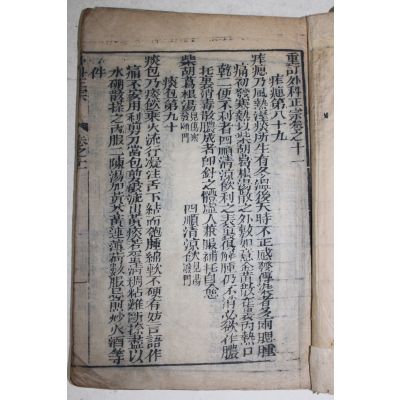 重訂外科正宗卷之十一
痄腮第八十九
痄腮乃風熱濕痰所生有冬溫後天時不正感發傳染者多兩腮腫
痛初發寒熱以柴胡葛根湯散之外敷如意金黃散在裏內熱口
乾二便不利者四順清涼飲利之表裏俱解腫仍不消必欲作膿
托裏消毒散膿成者即針之體虛人兼服補托自愈
柴胡葛根湯見傷寒發頤門　四順清涼飲見湯潑門
痰包第九十
痰包乃痰飲乘火流行凝注舌下結而匏腫綿軟不硬有妨言語作
痛不安用利剪刀當包剪破流出黃痰若蛋清稠粘難斷捺盡以
冰硼散搽之內服二陳湯加黃芩黃連薄荷數服忌煎炒火酒等
件